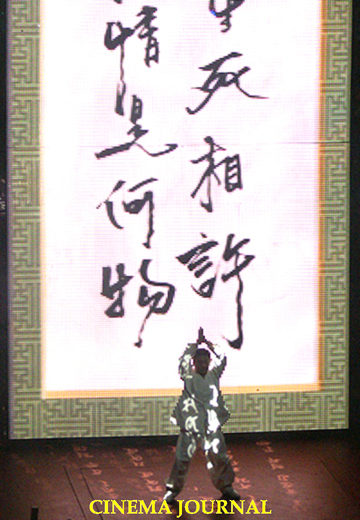 情是何物
生死相許
CINEMA JOURNAL